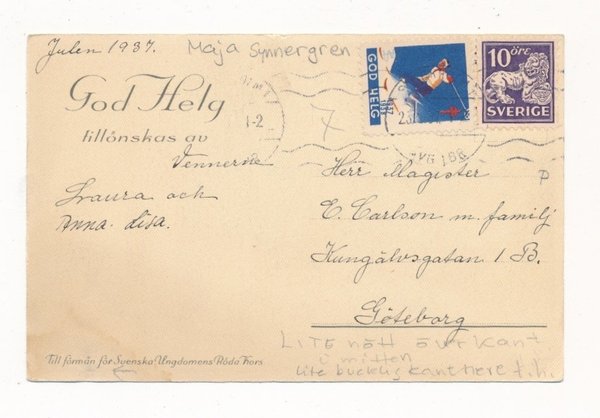 Julen 1937.
Maja Synnergren
God Helg
tillönskas av
Vennerne
Laura och
Anna-Lisa.
GOD HELG
10 ÖRE
SVERIGE
1-2
7
Herr Magister
E. Carlson m. familj
Kungälvsgatan 1 B.
Göteborg
P
Lite nött överkant
i mitten
lite bucklig kant nere t.h.
Till förmån för Svenska Ungdomens Röda Kors